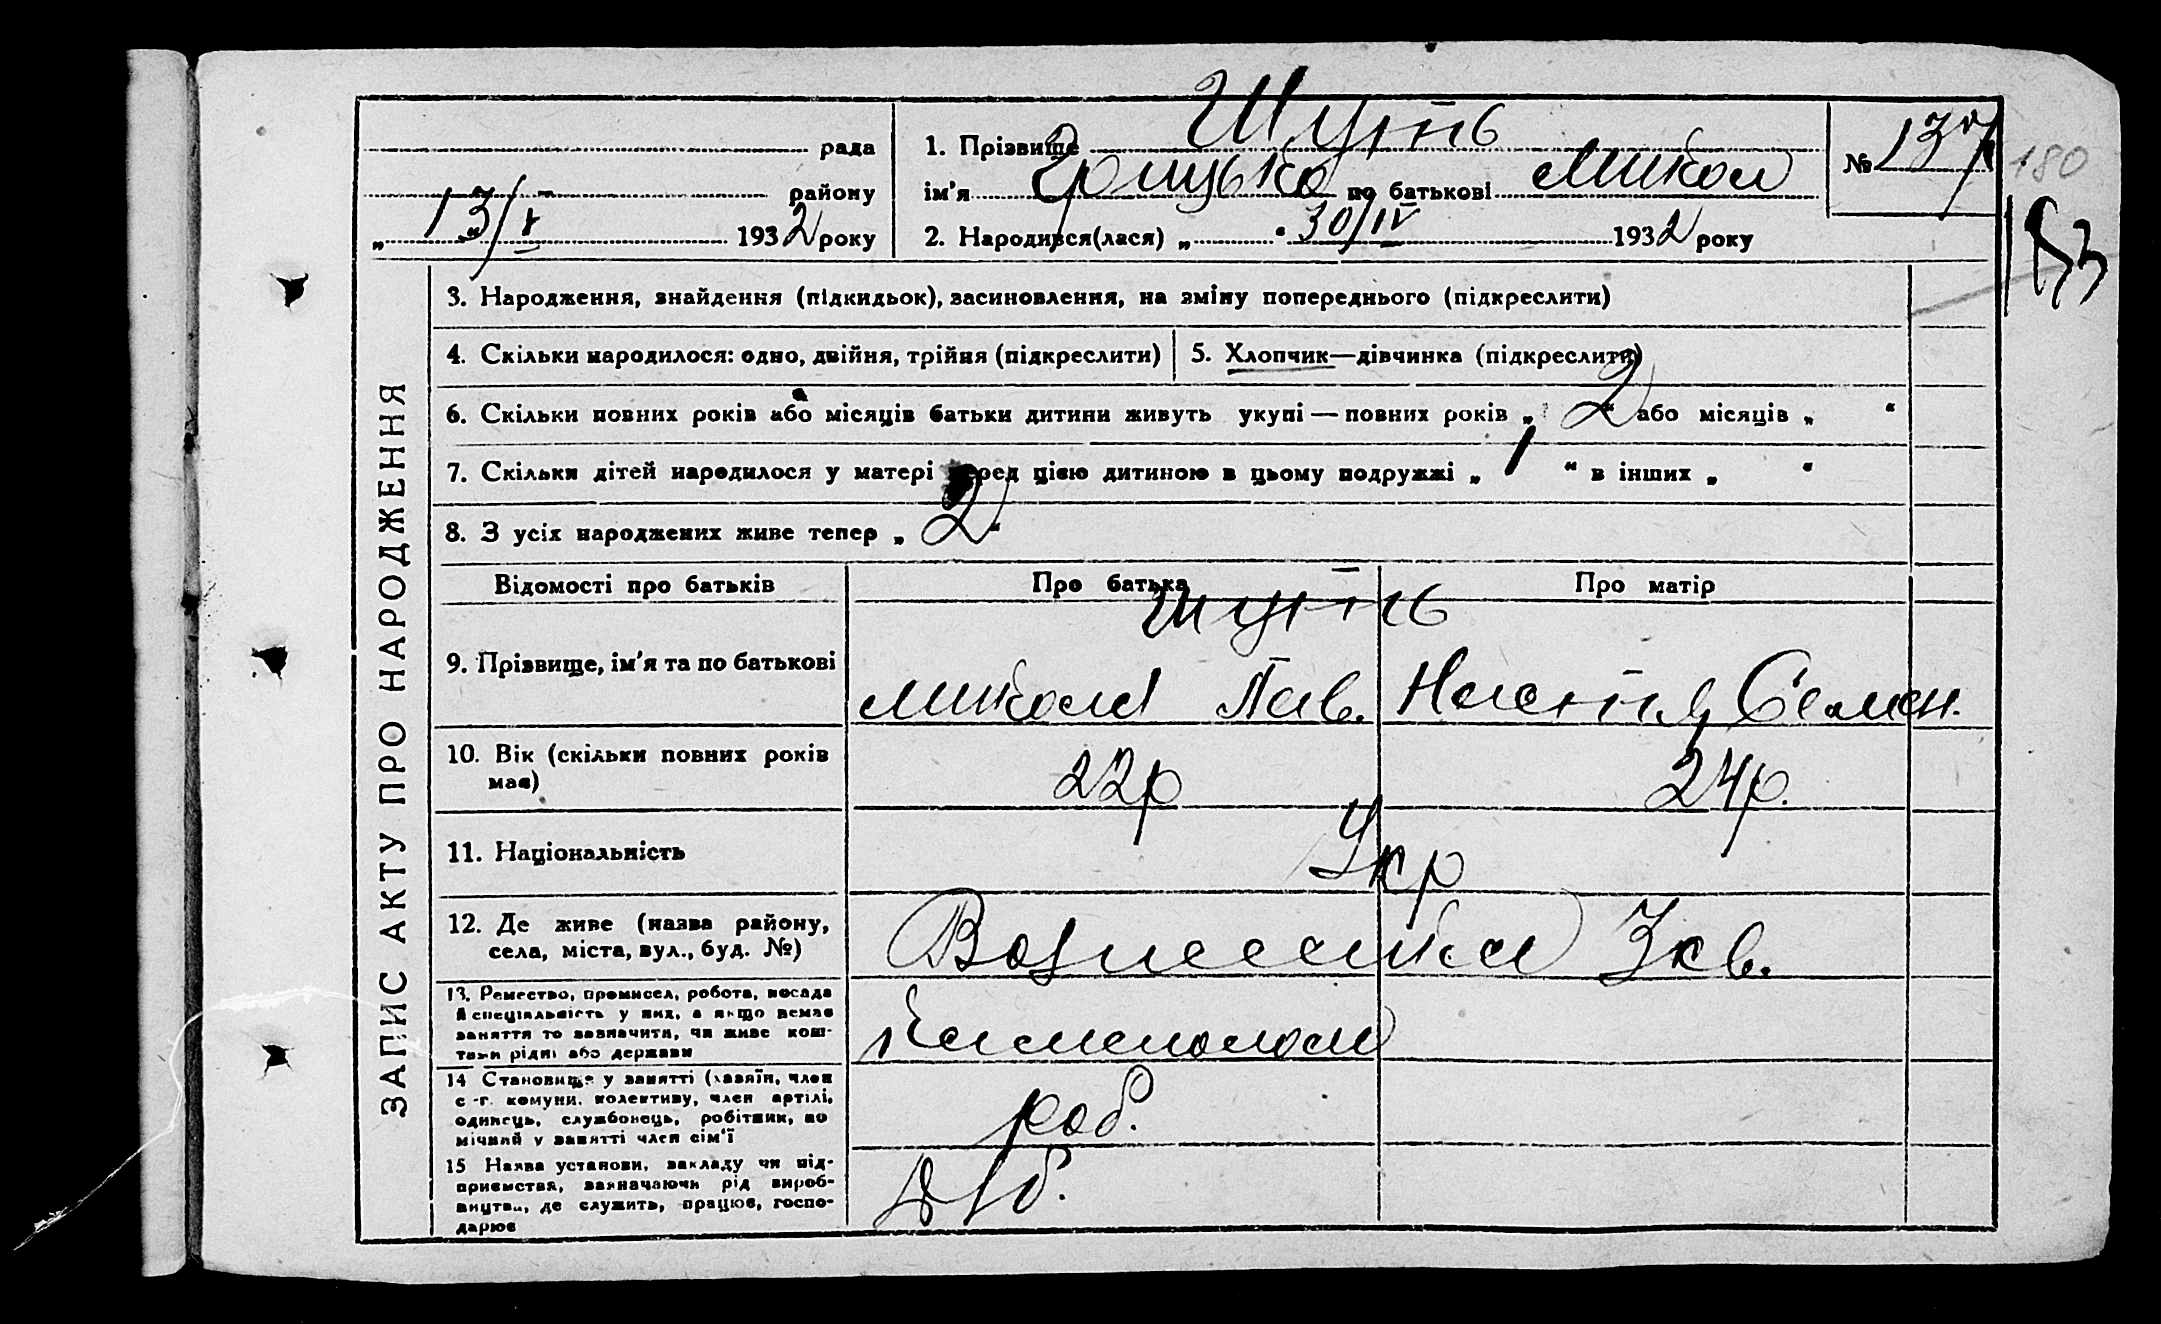 рада
району
„ 13/V 1932 року
1. Прізвище Шуть
ім'я Грицько по батькові Микол
2. Народився(лася) „ 30/IV 1932 року
№ 137
180
183
ЗАПИС АКТУ ПРО НАРОДЖЕННЯ
3. Народження, знайдення (підкидьок), засиновлення, на зміну попереднього (підкреслити)
4. Скільки народилося: одно, двійня, трійня (підкреслити)
5. Хлопчик—дівчинка (підкреслити)
6. Скільки повних років або місяців батьки дитини живуть укупі — повних років „ 2 “ або місяців „ “
7. Скільки дітей народилося у матері перед цією дитиною в цьому подружжі „ 1 “ в інших „ “
8. З усіх народжених живе тепер „ 2 “
Відомості про батьків Про батька Про матір
9. Прізвище, ім'я та по батькові
Шуть
Микола Пав. Настя Семен.
10. Вік (скільки повних років
має)
22р 24р.
11. Національність
Укр
12. Де живе (назва району,
села, міста, вул., буд. №)
Вознесенка 3 кв.
13. Ремество, промисел, робота, посада
й спеціяльність у них, а якщо немає
заняття то зазначити, чи живе кош-
тами рідні або держави
Каменолом
14 Становище у занятті (хазяїн, член
с.-г. комуни, колективу, член артілі,
одинець, службонець, робітник, по
мічний у занятті член сім'ї
роб.
15 Назва установи, закладу чи під-
приємства, зазначаючи рід вироб-
ництва, де служить, працює, госпо-
дарює